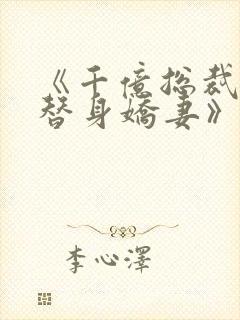 《千億総裁
替身嬌妻》
李心澤